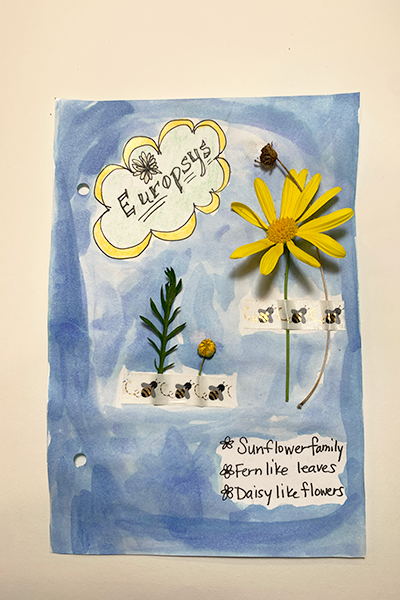 Europsys
Sunflower family
Fern like leaves
Daisy like flowers